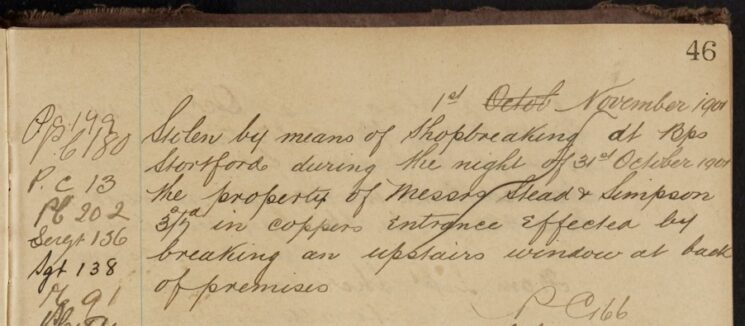 46
1st Octob November 1901
Stolen by means of Shopbreaking at Bps
Stortford during the night of 31st October 1901
the property of Messrs Stead & Simpson
3/7d in coppers Entrance Effected by
breaking an upstairs window at back
of premises
P C 166
149
P.C 180
P. C 13
PC 202
Sergt 136
Sgt 138
91